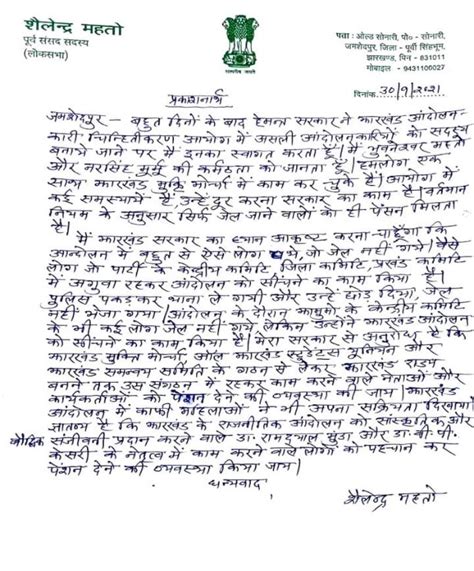 शैलेन्द्र महतो
पूर्व संसद सदस्य
(लोकसभा)
सत्यमेव जयते
पता : ओल्ड सोनारी, पो० - सोनारी,
जमशेदपुर, जिला - पूर्वी सिंहभूम,
झारखण्ड, पिन - 831011
मोबाइल - 9431100027
दिनांक 30/9/2021
प्रकाशनार्थ
जमशेदपुर - बहुत दिनों के बाद हेमन्त सरकार ने झारखंड आंदोलन-
कारी चिन्हितीकरण आयोग में असली आंदोलनकारियों को सदस्य
बनाये जाने पर मैं इनका स्वागत करता हूँ। मैं भुवनेश्वर महतो
और नरसिंह मुर्मू की कर्मठता को जानता हूँ। हमलोग एक
साथ झारखंड मुक्ति मोर्चा में काम कर चुके हैं। आयोग में
कई समस्यायें हैं, उन्हें दूर करना सरकार का काम है। वर्तमान
नियम के अनुसार सिर्फ जेल जाने वालों को ही पेंसन मिलता
है।
मैं झारखंड सरकार का ध्यान आकृष्ट करना चाहूँगा कि
आन्दोलन में बहुत से ऐसे लोग थे, जो जेल नहीं गये। वैसे
लोग जो पार्टी के केन्द्रीय कमिटि, जिला कमिटि, प्रखंड कमिटि
में अगुवा रहकर आंदोलन को सींचने का काम किया है।
पुलिस पकड़ कर थाना ले गयी और उन्हें छोड़ दिया, जेल
नहीं भेजा गया। आंदोलन के दौरान झामुमो के केन्द्रीय कमिटि
के भी कई लोग जेल नहीं गये, लेकिन उन्होंने झारखंड आंदोलन
को सींचने का काम किया है। मेरा सरकार से अनुरोध है कि
झारखंड मुक्ति मोर्चा, ऑल झारखंड स्टूडेंट्स यूनियन और
झारखंड समन्वय समिति के गठन से लेकर झारखंड राज्य
बनने तक उस संगठन में रहकर काम करने वाले नेताओं और
कार्यकर्ताओं को पेंशन देने की व्यवस्था की जाय। झारखंड
आंदोलन में काफी महिलाओं ने भी अपना सक्रियता दिखाया।
ज्ञातव्य है कि झारखंड के राजनीतिक आंदोलन को सांस्कृतिक और
बौद्धिक संजीवनी प्रदान करने वाले डा. रामदयाल मुंडा और डा. बी. पी.
केसरी के नेतृत्व में काम करने वाले लोगों को पहचान कर
पेंशन देने की व्यवस्था किया जाय।
धन्यवाद
शैलेन्द्र महतो